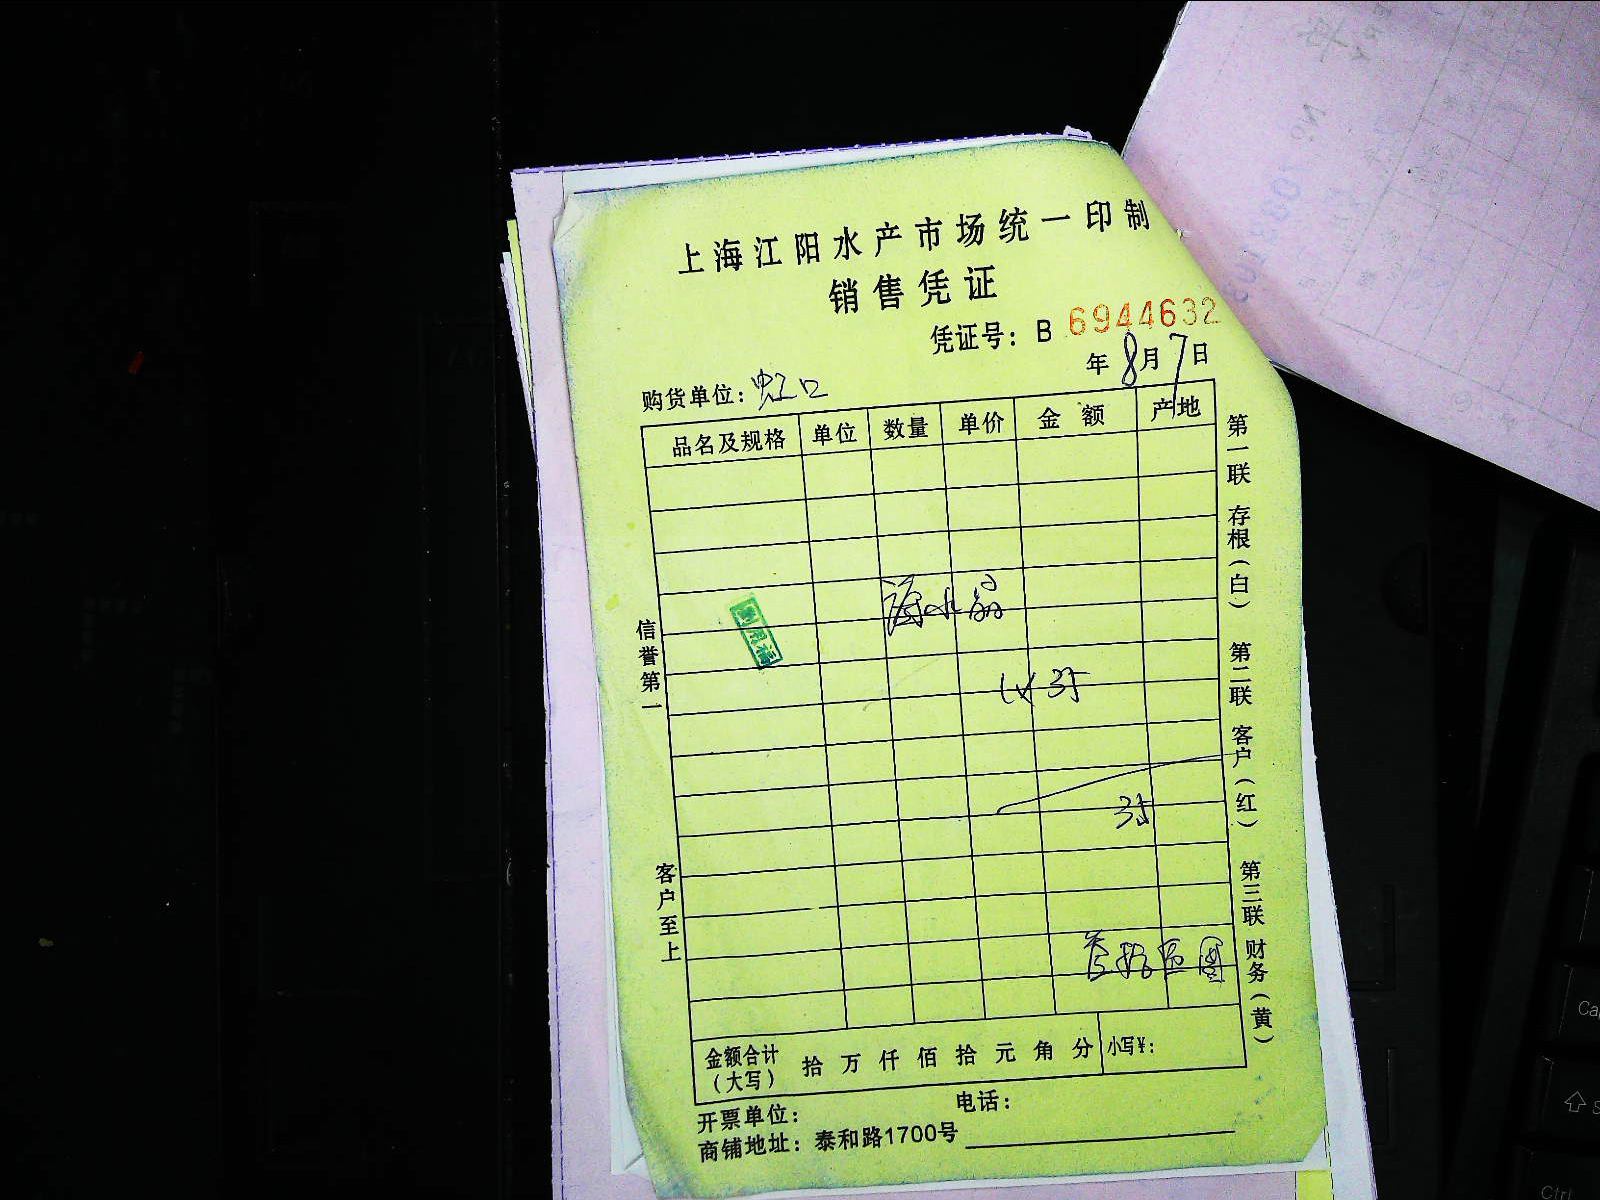 上海江阳水产市场统一印制
销售凭证
凭证号：B 6944632
年8月7日
购货单位：虹口
品名及规格 单位 数量 单价 金额 产地
1× 35
35
叁拾伍圆
金额合计（大写） 拾 万 仟 佰 拾 元 角 分 小写¥：
开票单位： 电话：
商铺地址：泰和路1700号
信誉第一
客户至上
第一联 存根（白）
第二联 客户（红）
第三联 财务（黄）
Ctrl